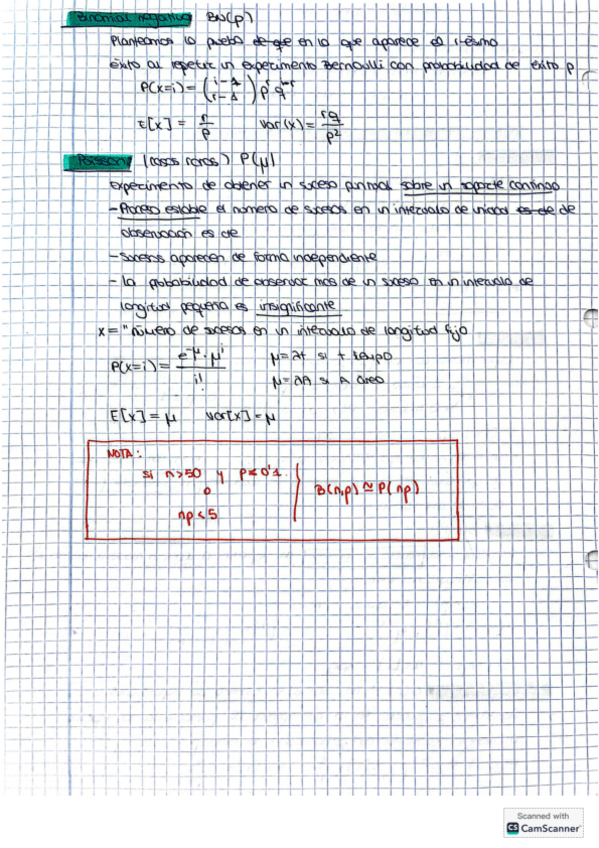 Binomial negativa BN(p)
Planteamos la prueba de que en la que aparece el r-ésimo
éxito al repetir un experimento Bernoulli con probabilidad de éxito p
P(x=i) = (i-1 r-1) p^r q^i-r
E[x] = r/p    Var(x) = rq/p²
Poisson (casos raros) P(μ)
Experimento de obtener un suceso puntual sobre un soporte continuo
- Proceso estable el número de sucesos en un intervalo de unidad es de de
observación es de
- Sucesos aparecen de forma independiente
- La probabilidad de observar mas de un suceso en un intervalo de
longitud pequeña es insignificante
x = "número de sucesos en un intervalo de longitud fijo
P(x=i) = e^-μ · μ^i / i!    μ=λt si t tiempo
μ=λA si A área
E[x] = μ    var[x] = μ
NOTA:
si n>50 y p<0'1.
o
np<5
B(n,p) ≅ P(np)
Scanned with
CS CamScanner